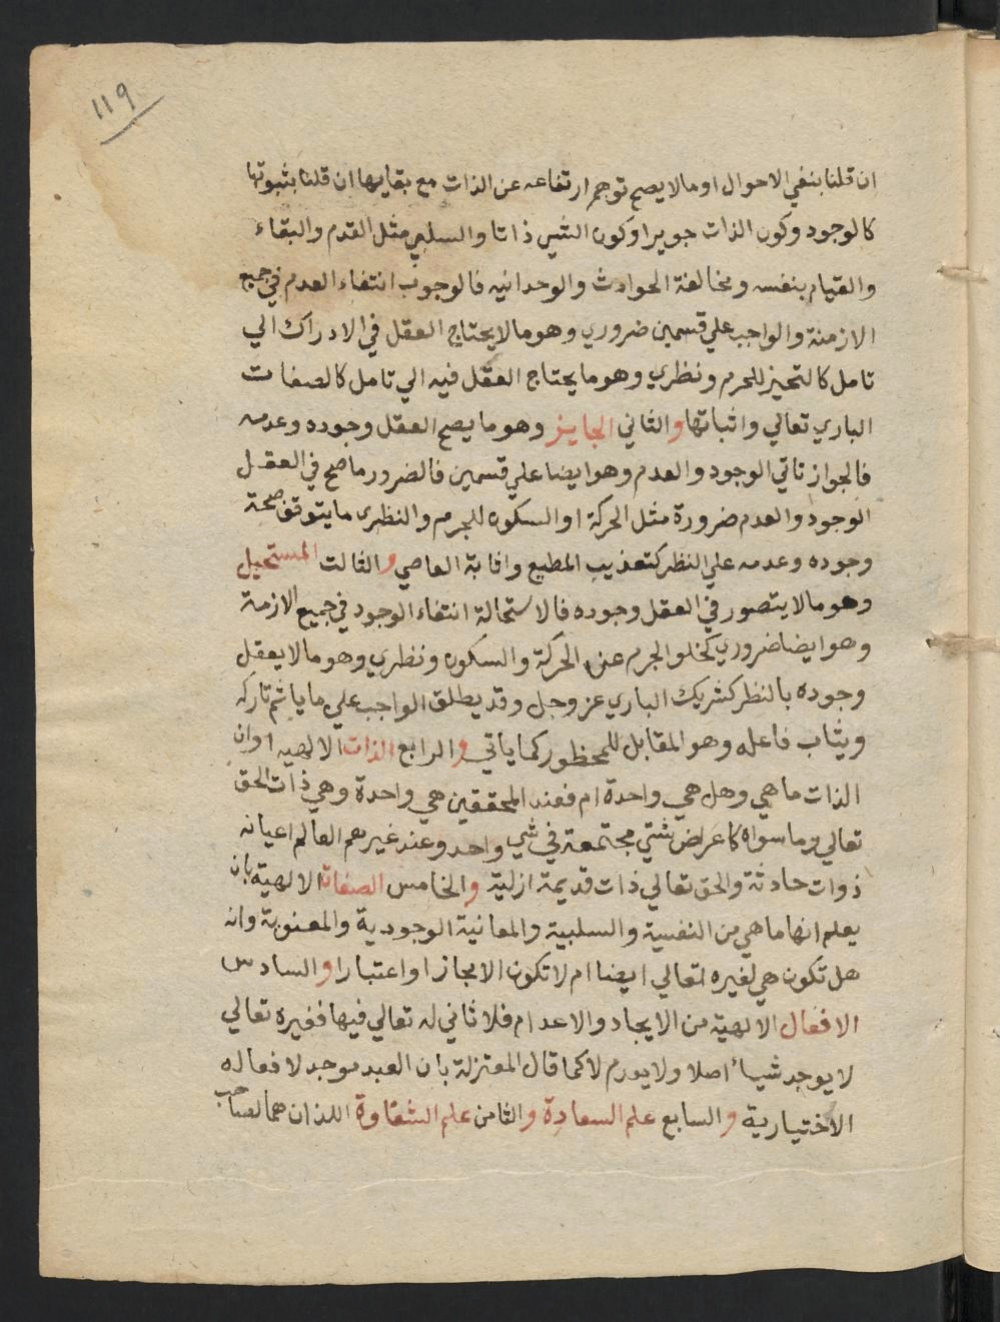 ١١٩
ان قلنا بنفي الاحوال او ما لا يصح توهم ارتفاعه عن الذات مع بقايها ان قلنا بثبوتها
كالوجود وكون الذات جوهرا وكون الشي ذاتا والسلبي مثل القدم والبقاء
والقيام بنفسه ومخالفة الحوادث والوحدانيه فالوجوب انتفاء العدم في جميع
الازمنة والواجب علي قسمين ضروري وهو ما لا يحتاج العقل في الادراك الي
تامل كالتحيز للجرم ونظري وهو ما يحتاج العقل فيه الي تامل كالصفات
الباري تعالي واثباتها والثاني الجايز وهو ما يصح العقل وجوده وعدمه
فالجواز تاتي الوجود والعدم وهو ايضا علي قسمين فالضرور ما صح في العقل
الوجود والعدم ضرورة مثل الحركة او السكون للجرم والنظري ما يتوقف صحة
وجوده وعدمه علي النظر كتعذيب المطيع واثابة العاصي والثالث المستحيل
وهو ما لا يتصور في العقل وجوده فالاستحالة انتفاء الوجود في جميع الازمنة
وهو ايضا ضروري كخلو الجرم عن الحركة والسكون ونظري وهو ما لا يعقل
وجوده بالنظر كشريك الباري عز وجل وقد يطلق الواجب علي ما ياثم تاركه
ويثاب فاعله وهو المقابل للمحظور كما ياتي والرابع الذات الالهيه اوان
الذات ما هي وهل هي واحدة ام فعند المحققين هي واحدة وهي ذات الحق
تعالي وما سواه كاعراض شتي مجتمعة في شي واحد وعند غيرهم العالم اعيانه
ذوات حادثة والحق تعالي ذات قديمة ازلية والخامس الصفات الالهية بان
يعلم انها ما هي من النفسية والسلبية والمعانية الوجودية والمعنوية وانه
هل تكون هي لغيره تعالي ايضا ام لا تكون الا مجازا واعتبارا والسادس
الافعال الالهية من الايجاد والاعدام فلا ثاني له تعالي فيها فغيره تعالي
لا يوجد شياء اصلا ولا يعدم لا كما قال المعتزلة بان العبد موجد لافعاله
الاختيارية والسابع علم السعادة والثامن علم الشقاوة اللذان هما لصاحب